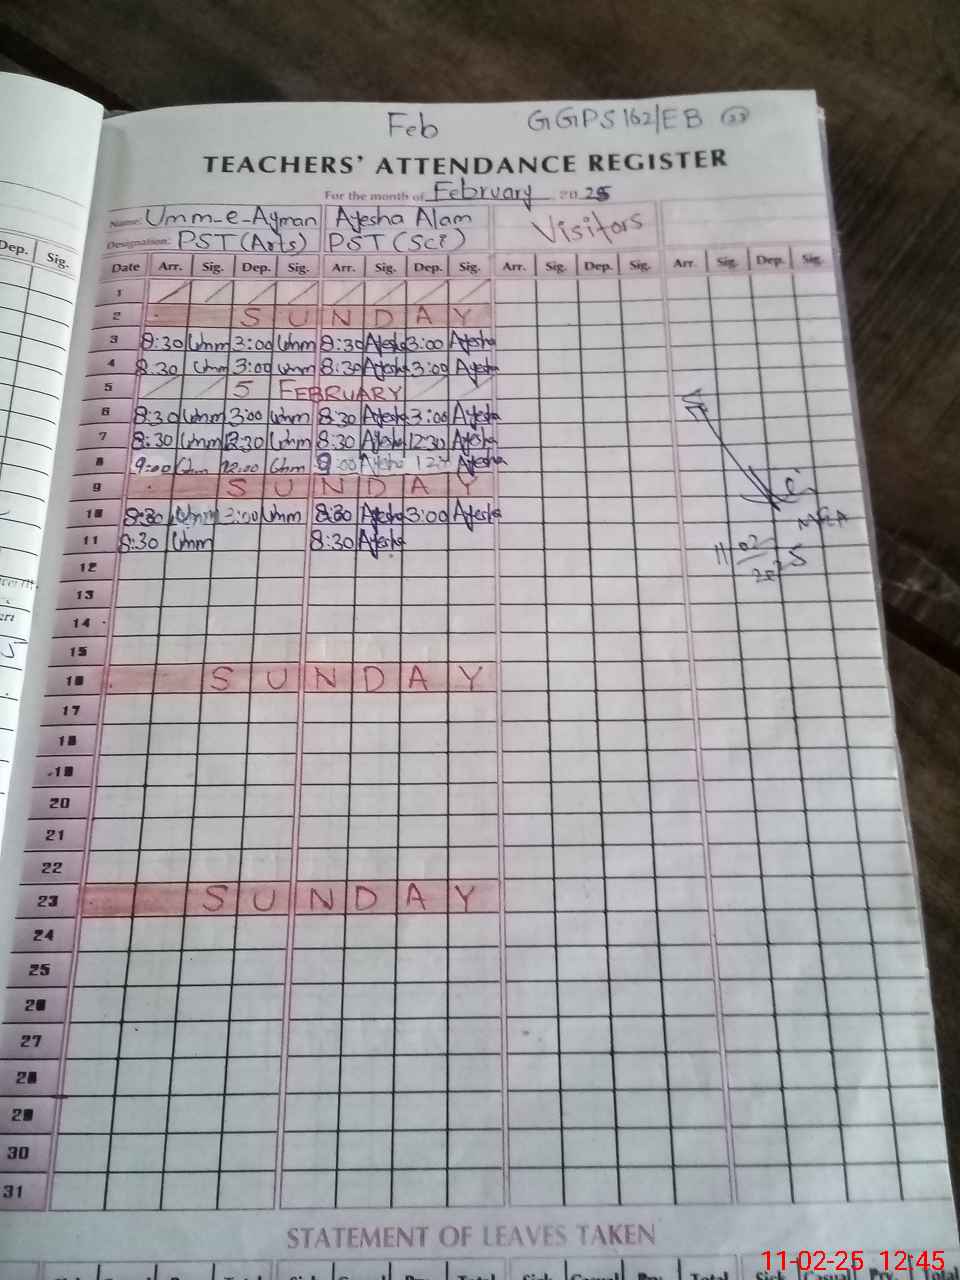 Feb GGPS 162/EB 23
TEACHERS' ATTENDANCE REGISTER
For the month of February 2025
Name: Umm-e-Ayman Ayesha Alam Visitors
Designation: PST(Arts) PST(Sci)
Dep. Sig.
Date Arr. Sig. Dep. Sig. Arr. Sig. Dep. Sig. Arr. Sig. Dep. Sig. Arr. Sig. Dep. Sig.
1
2 SUNDAY
3 8:30 Umm 3:00 Umm 8:30 Ayesha 3:00 Ayesha
4 8:30 Umm 3:00 Umm 8:30 Ayesha 3:00 Ayesha
5 5 FEBRUARY
6 8:30 Umm 3:00 Umm 8:30 Ayesha 3:00 Ayesha
7 8:30 Umm 12:30 Umm 8:30 Ayesha 12:30 Ayesha
8 9:00 Umm 12:00 Umm 9:00 Ayesha Ayesha
9 SUNDAY
10 8:30 Umm 3:00 Umm 8:30 Ayesha 3:00 Ayesha
11 8:30 Umm 8:30 Ayesha
MEA
11 02 2025
12
13
14
15
16 SUNDAY
17
18
19
20
21
22
23 SUNDAY
24
25
26
27
28
29
30
31
STATEMENT OF LEAVES TAKEN
Total Sick Casual
11-02-25 12:45